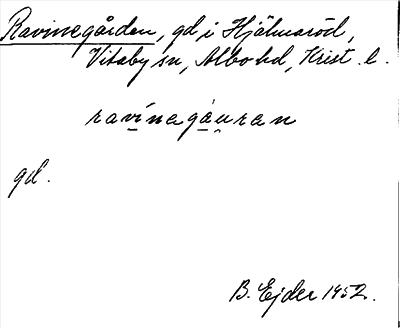 Ravinegården, gd i Hjälmaröd,
Vitaby sn, Albo hd, Krist. l.
ravínegáuran
gd.
B. Ejder 1952.